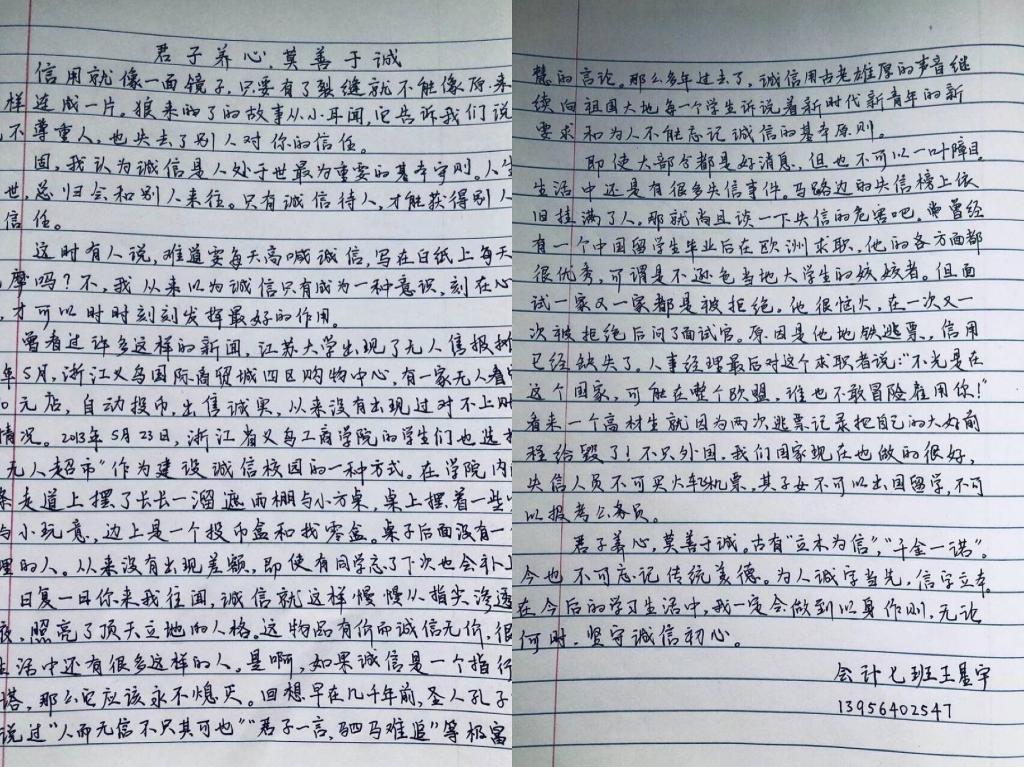 君子养心,莫善于诚
信用就像一面镜子,只要有了裂缝就不能像原来
样连成一片。狼来的了的故事从小耳闻,它告诉我们说
不尊重人,也失去了别人对你的信任。
固,我认为诚信是人处于世最为重要的基本守则。人生
世,总归会和别人来往。只有诚信待人,才能获得别人
信任。
这时有人说,难道要每天高喊诚信,写在白纸上每天
摩吗?不,我从来以为诚信只有成为一种意识,刻在心
才可以时时刻刻发挥最好的作用。
曾看过许多这样的新闻,江苏大学出现了无人售报摊
年5月,浙江义乌国际商贸城四区购物中心,有一家无人看
0元店,自动投币,出售诚实,从来没有出现过对不上账
情况。2013年5月23日,浙江省义乌工商学院的学生们也选
无人超市"作为建设诚信校园的一种方式。在学院内
条走道上摆了长长一溜遮雨棚与小方桌,桌上摆着一些
与小玩意,边上是一个投币盒和找零盒。桌子后面没有一
理的人。从来没有出现差额,即使有同学忘了下次也会补上
日复一日你来我往间,诚信就这样慢慢从指尖渗透
夜,照亮了顶天立地的人格。这物品有价而诚信无价,很
生活中还有很多这样的人。是啊,如果诚信是一个指行
塔,那么它应该永不熄灭。回想早在几千年前,圣人孔子
说过"人而无信不只其可也""君子一言,驷马难追"等极富
慧的言论。那么多年过去了,诚信用古老雄厚的声音继
续向祖国大地每一个学生诉说着新时代新青年的新
要求和为人不能忘记诚信的基本原则。
即使大部分都是好消息,但也不可以一叶障目。
生活中还是有很多失信事件。马路边的失信榜上依
旧挂满了人。那就尚且谈一下失信的危害吧。曾经
有一个中国留学生毕业后在欧洲求职,他的各方面都
很优秀,可谓是不逊色当地大学生的姣姣者。但面
试一家又一家都是被拒绝。他很恼火,在一次又一
次被拒绝后问了面试官。原因是他地铁逃票,信用
已经缺失了。人事经理最后对这个求职者说:"不光是在
这个国家,可能在整个欧盟,谁也不敢冒险雇用你!"
看来一个高材生就因为两次逃票记录把自己的大好前
程给毁了!不只外国,我们国家现在也做的很好,
失信人员不可买火车飞机票,其子女不可以出国留学,不可
以报考公务员。
君子养心,莫善于诚。古有"立木为信","千金一诺"。
今也不可忘记传统美德。为人诚字当先,信字立本。
在今后的学习生活中,我一定会做到以身作则,无论
何时,坚守诚信初心。
会计七班王星宇
13956402547